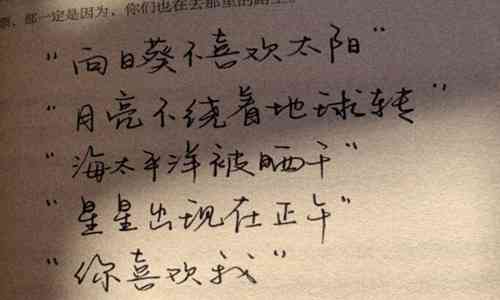 票，都一定是因为，你们也在去那里的路上。
"向日葵不喜欢太阳"
"月亮不绕着地球转"
"海太平洋被晒干"
"星星出现在正午"
"你喜欢我"